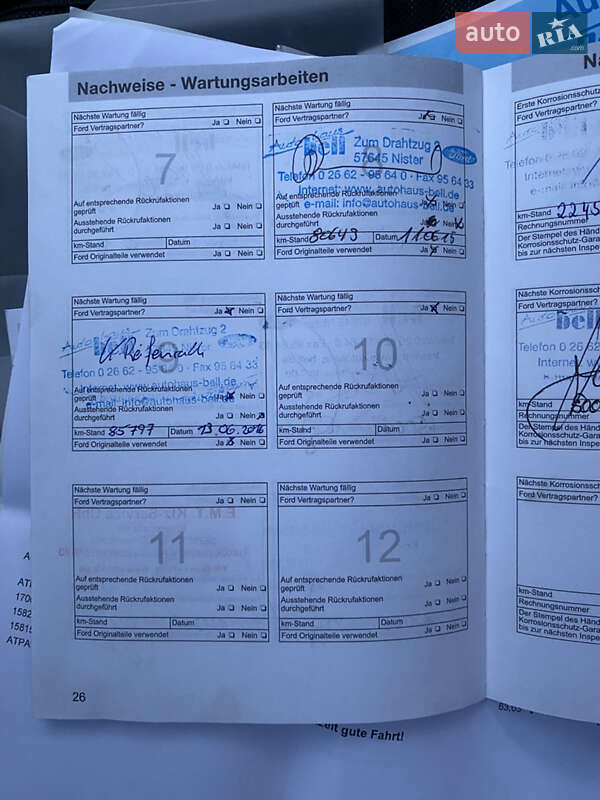 auto RIA .com
Nachweise - Wartungsarbeiten
Nächste Wartung fällig
Ford Vertragspartner? Ja Nein
7
Auf entsprechende Rückrufaktionen
geprüft Ja Nein
Ausstehende Rückrufaktionen
durchgeführt Ja Nein
km-Stand Datum
Ford Originalteile verwendet Ja Nein
Nächste Wartung fällig
Ford Vertragspartner? Ja Nein
8
Autohaus bell Zum Drahtzug 2
57645 Nister
Telefon 0 26 62 - 95 64 0 - Fax 95 64 33
Internet: www.autohaus-bell.de
e-mail: info@autohaus-bell.de
Auf entsprechende Rückrufaktionen
geprüft Ja Nein
Ausstehende Rückrufaktionen
durchgeführt Ja Nein
km-Stand 80649 Datum 110615
Ford Originalteile verwendet Ja Nein
Nächste Wartung fällig
Ford Vertragspartner? Ja Nein
9
Zum Drahtzug 2
Nister
Telefon 0 26 62 - 95 64 0 - Fax 95 64 33
Internet: www.autohaus-bell.de
e-mail: info@autohaus-bell.de
Auf entsprechende Rückrufaktionen
geprüft Ja Nein
Ausstehende Rückrufaktionen
durchgeführt Ja Nein
km-Stand 85797 Datum 23 06. 2016
Ford Originalteile verwendet Ja Nein
Nächste Wartung fällig
Ford Vertragspartner? Ja Nein
10
Auf entsprechende Rückrufaktionen
geprüft Ja Nein
Ausstehende Rückrufaktionen
durchgeführt Ja Nein
km-Stand Datum
Ford Originalteile verwendet Ja Nein
Nächste Wartung fällig
Ford Vertragspartner? Ja Nein
11
Auf entsprechende Rückrufaktionen
geprüft Ja Nein
Ausstehende Rückrufaktionen
durchgeführt Ja Nein
km-Stand Datum
Ford Originalteile verwendet Ja Nein
Nächste Wartung fällig
Ford Vertragspartner? Ja Nein
12
Auf entsprechende Rückrufaktionen
geprüft Ja Nein
Ausstehende Rückrufaktionen
durchgeführt Ja Nein
km-Stand Datum
Ford Originalteile verwendet Ja Nein
26
Erste Korrosionsschutz
Ford Vertragspartner?
km-Stand 2245
Rechnungsnummer
Der Stempel des Händ
Korrosionsschutz-Gara
bis zur nächsten Inspe
Nächste Korrosionssch
Ford Vertragspartner?
bell
km-Stand
Rechnungsnummer
Der Stempel des Händ
Korrosionsschutz-Gara
bis zur nächsten Inspe
Nächste Korrosionssch
Ford Vertragspartner?
km-Stand
Rechnungsnummer
Der Stempel des Händ
Korrosionsschutz-Gara
bis zur nächsten Inspe
gute Fahrt!